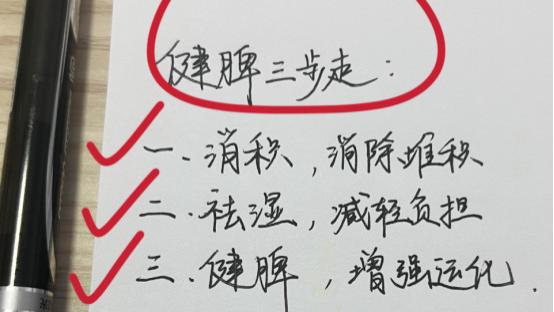 健脾三步走：
一.消积，消除堆积
二.祛湿，减轻负担
三.健脾，增强运化.